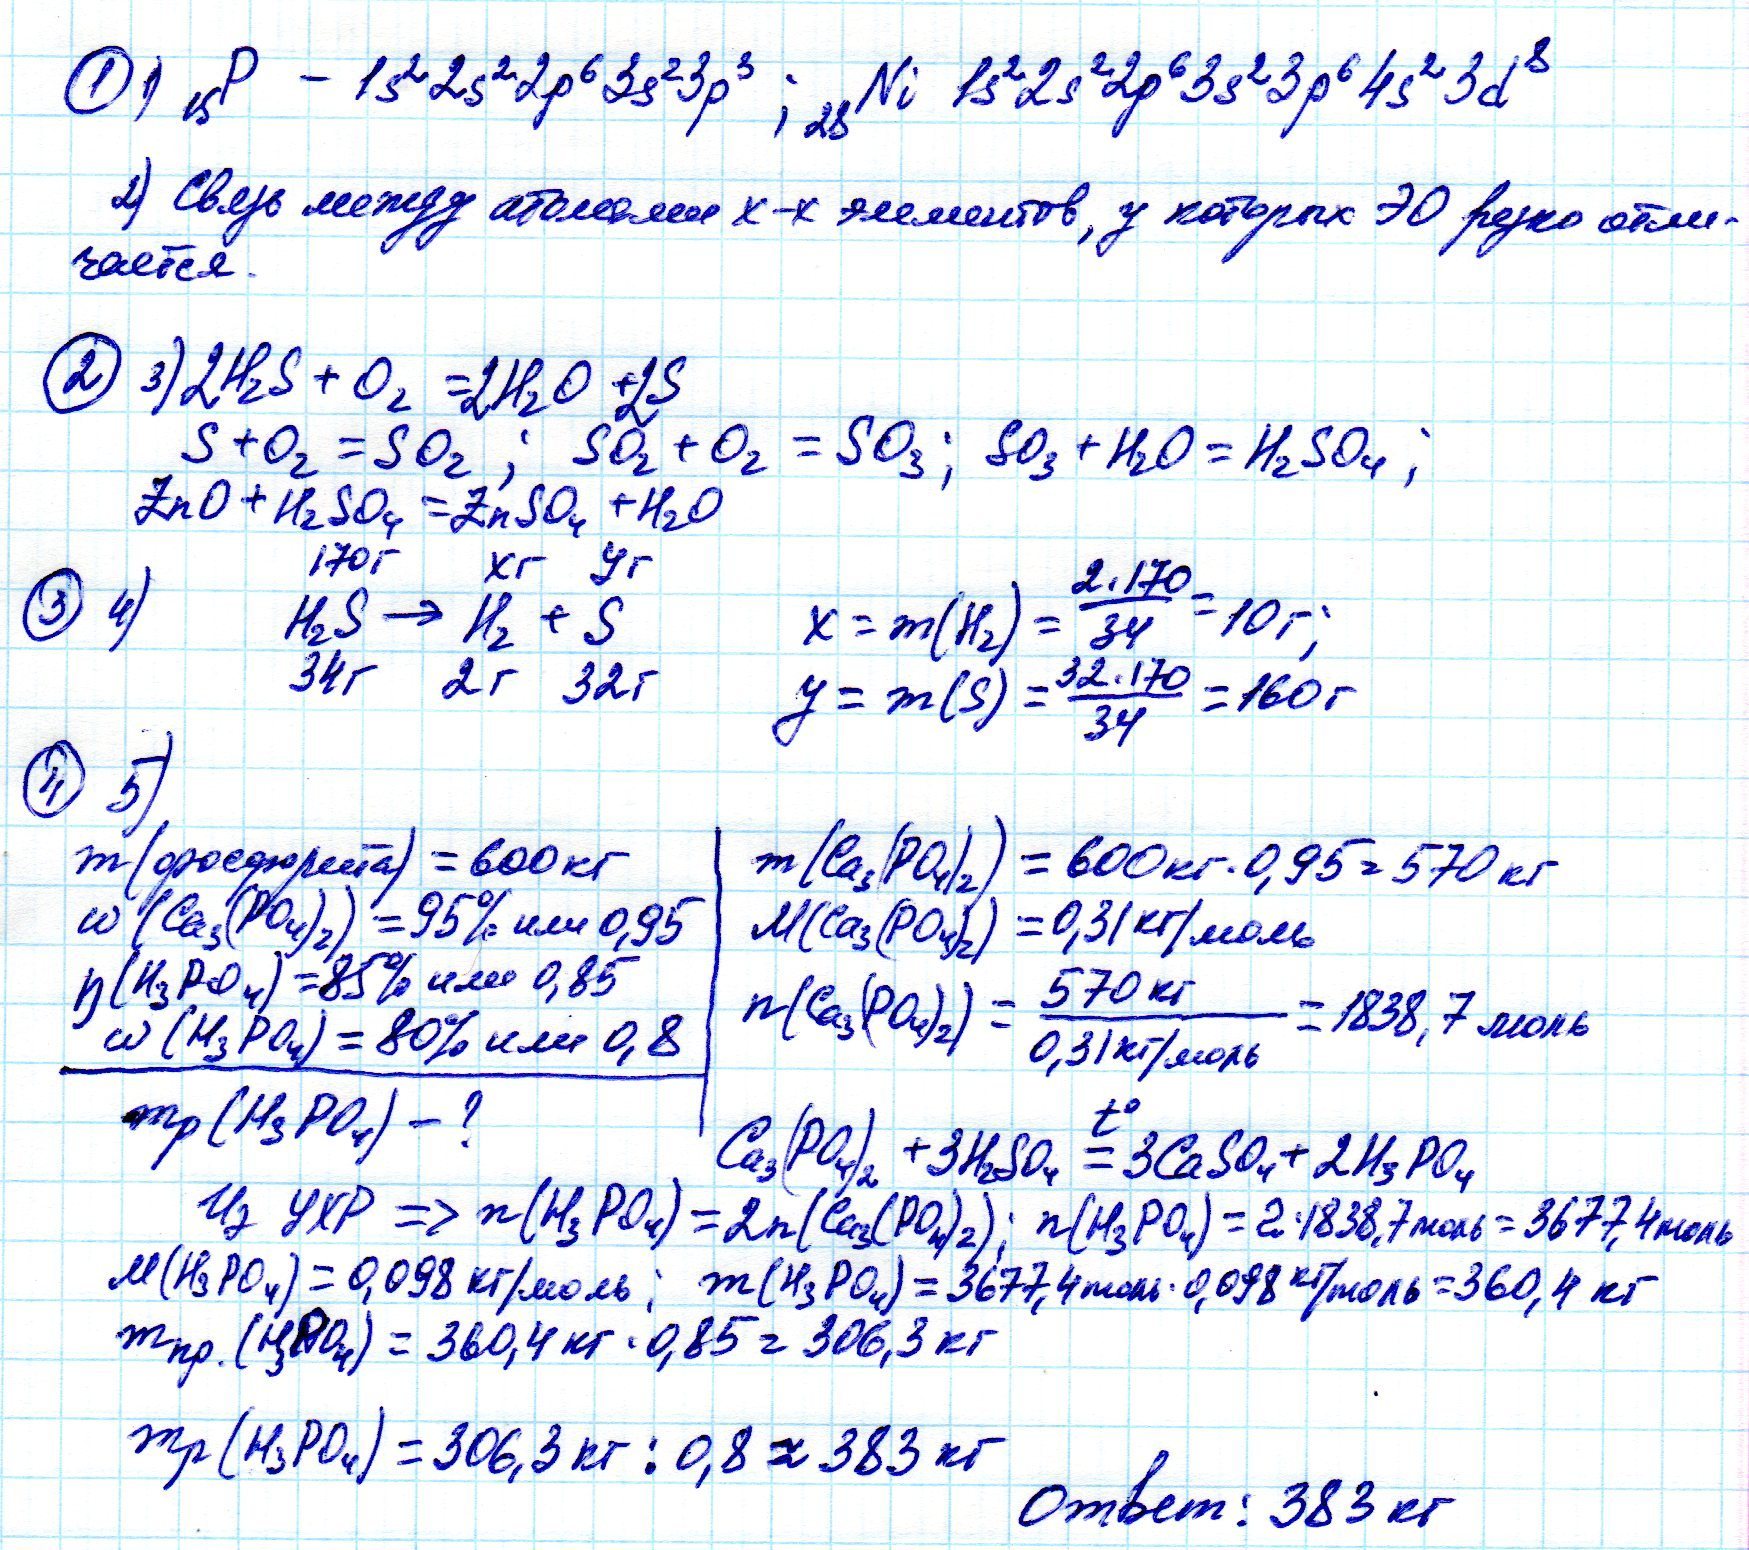 ① 1) ₁₅P – 1s²2s²2p⁶3s²3p³ ; ₂₈Ni 1s²2s²2p⁶3s²3p⁶4s²3d⁸
2) Связь между атомами х-х элементов, у которых ЭО резко отли-
чается.
② 3) 2H₂S + O₂ = 2H₂O + 2S
S + O₂ = SO₂ ; SO₂ + O₂ = SO₃ ; SO₃ + H₂O = H₂SO₄ ;
ZnO + H₂SO₄ = ZnSO₄ + H₂O
170г xг yг
③ 4) H₂S → H₂ + S x = m(H₂) = 2·170/34 = 10г;
34г 2г 32г y = m(S) = 32·170/34 = 160г
④ 5)
m(фосфорита) = 600кг
w(Ca₃(PO₄)₂) = 95% или 0,95
η(H₃PO₄) = 85% или 0,85
w(H₃PO₄) = 80% или 0,8
mр(H₃PO₄) – ?
m(Ca₃(PO₄)₂) = 600кг·0,95 = 570кг
M(Ca₃(PO₄)₂) = 0,31кг/моль
n(Ca₃(PO₄)₂) = 570кг/0,31кг/моль = 1838,7моль
Ca₃(PO₄)₂ + 3H₂SO₄ =t° 3CaSO₄ + 2H₃PO₄
Из УХР => n(H₃PO₄) = 2n(Ca₃(PO₄)₂); n(H₃PO₄) = 2·1838,7моль = 3677,4моль
M(H₃PO₄) = 0,098кг/моль; m(H₃PO₄) = 3677,4моль·0,098кг/моль = 360,4 кг
mпр.(H₃PO₄) = 360,4кг·0,85 = 306,3кг
mр(H₃PO₄) = 306,3кг : 0,8 ≈ 383кг
Ответ: 383кг